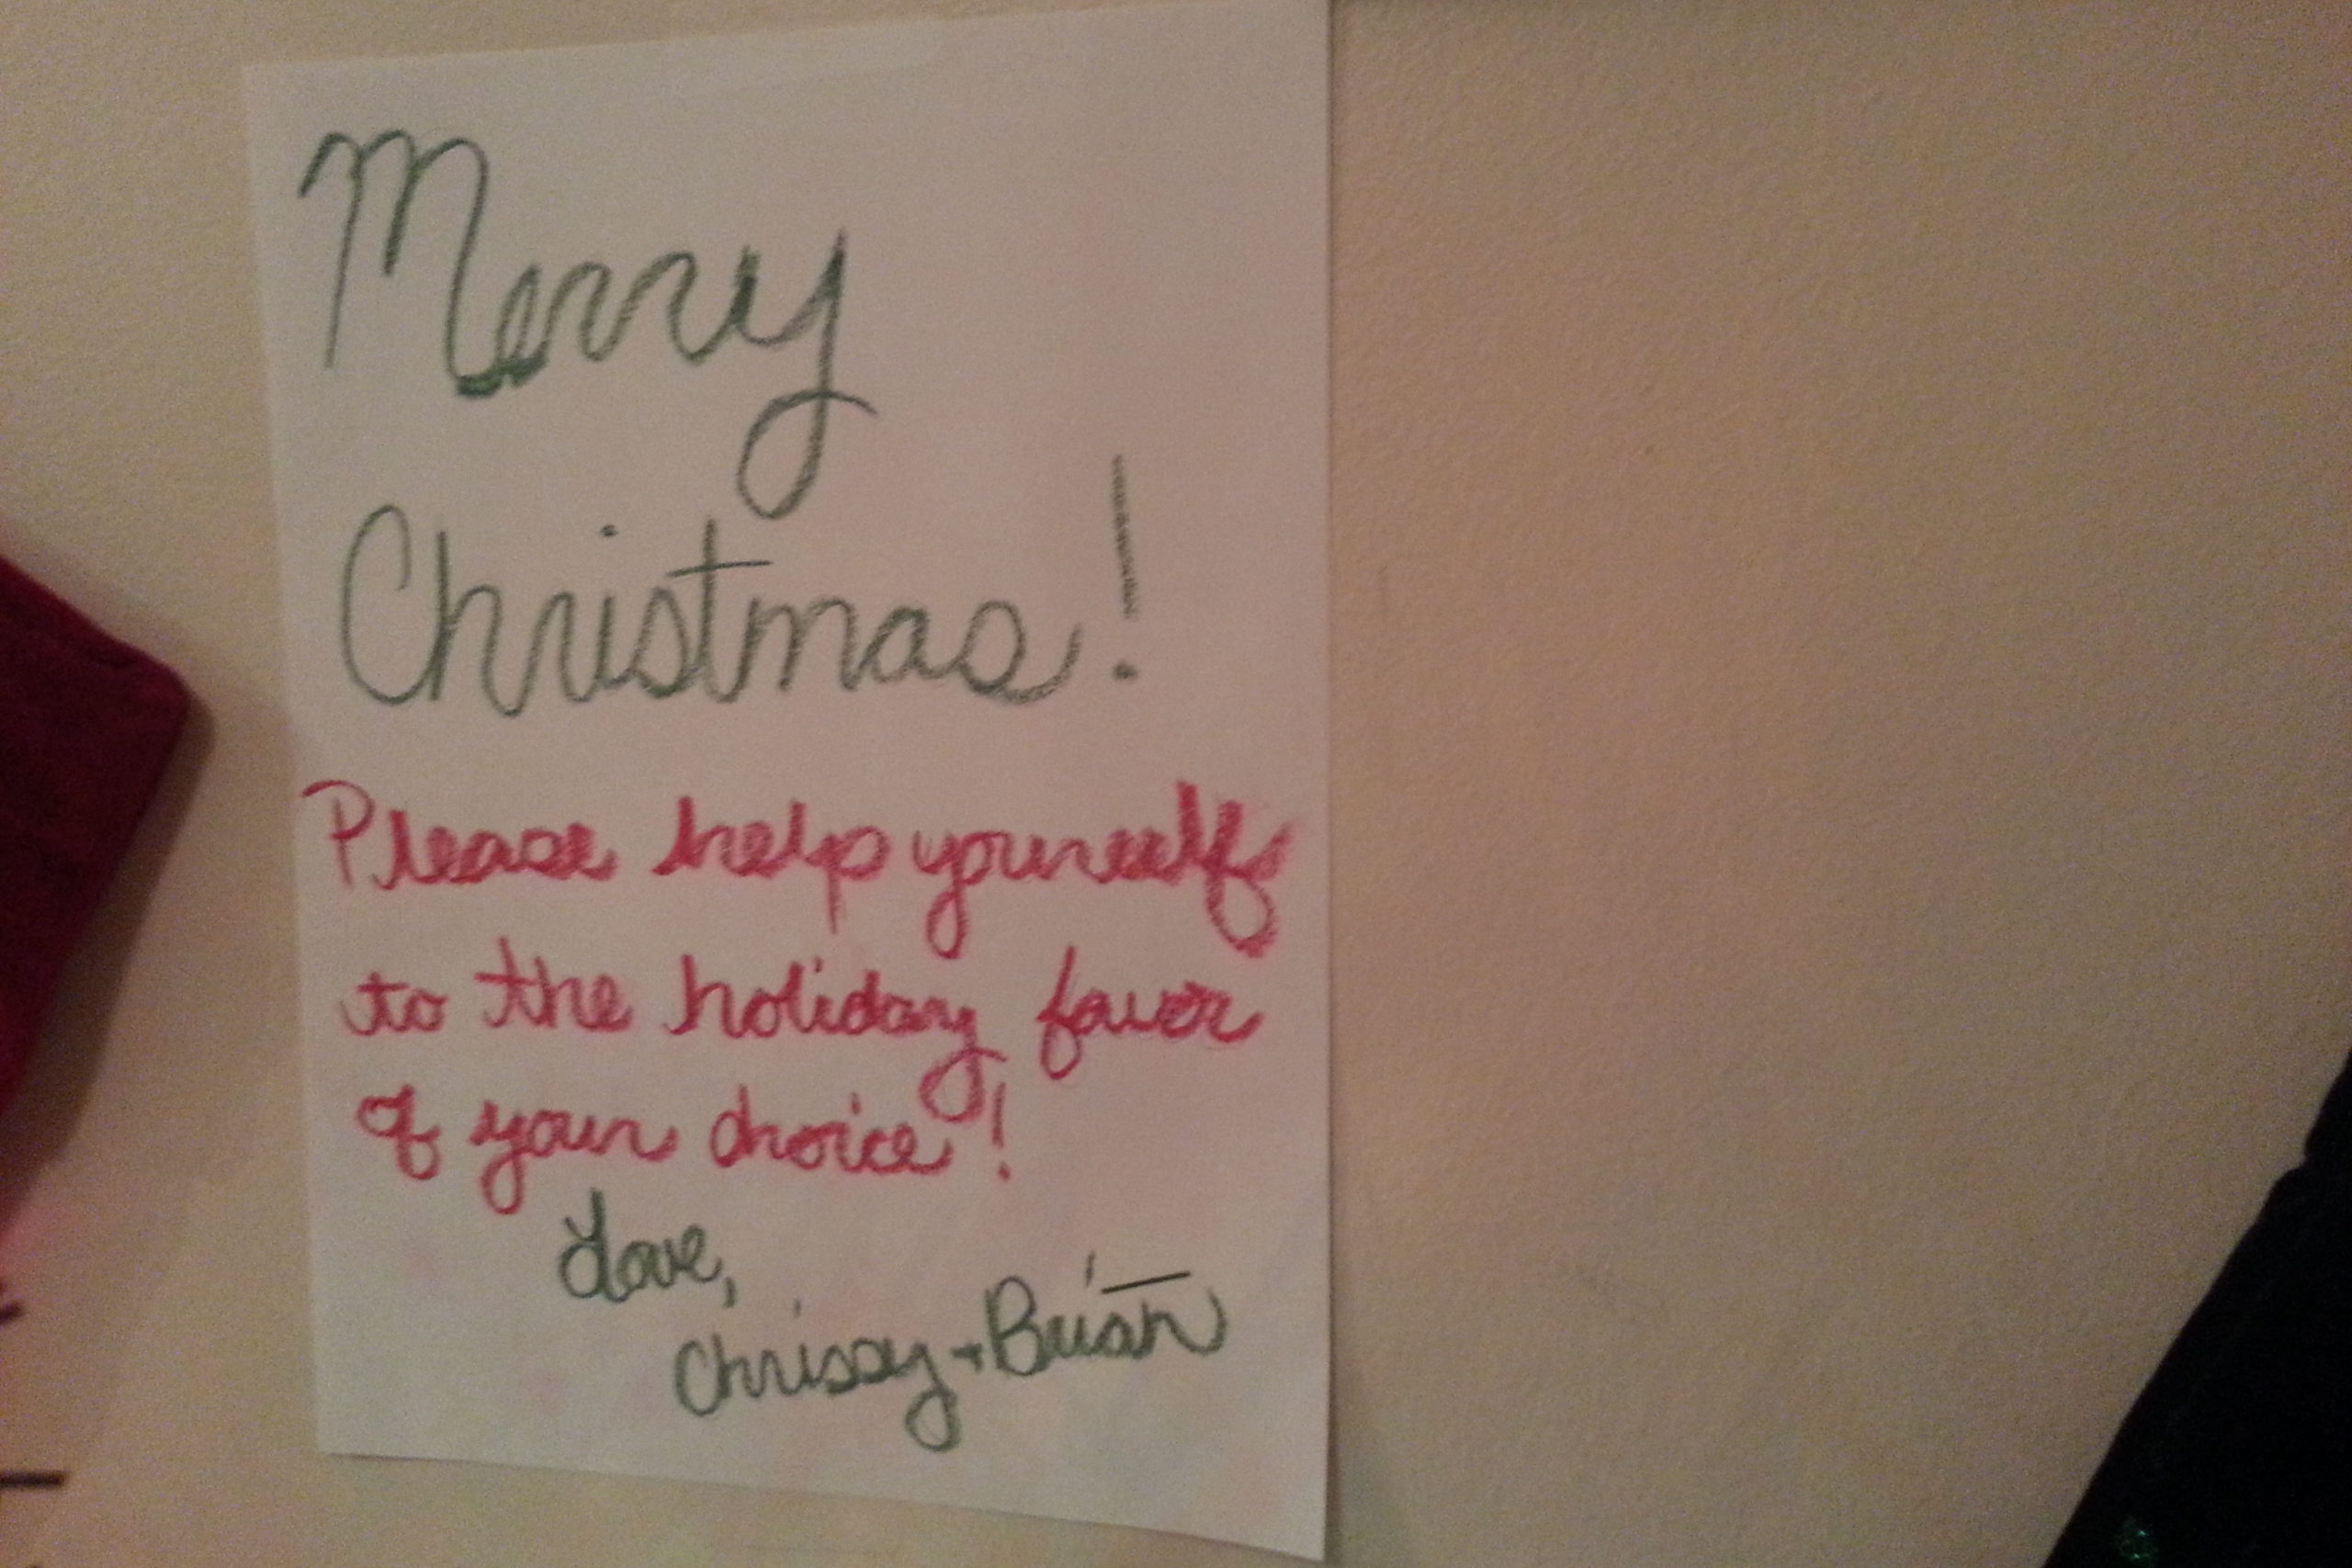 Merry
Christmas!
Please help yourself
to the holiday favor
of your choice!
Love,
Chrissy + Brian